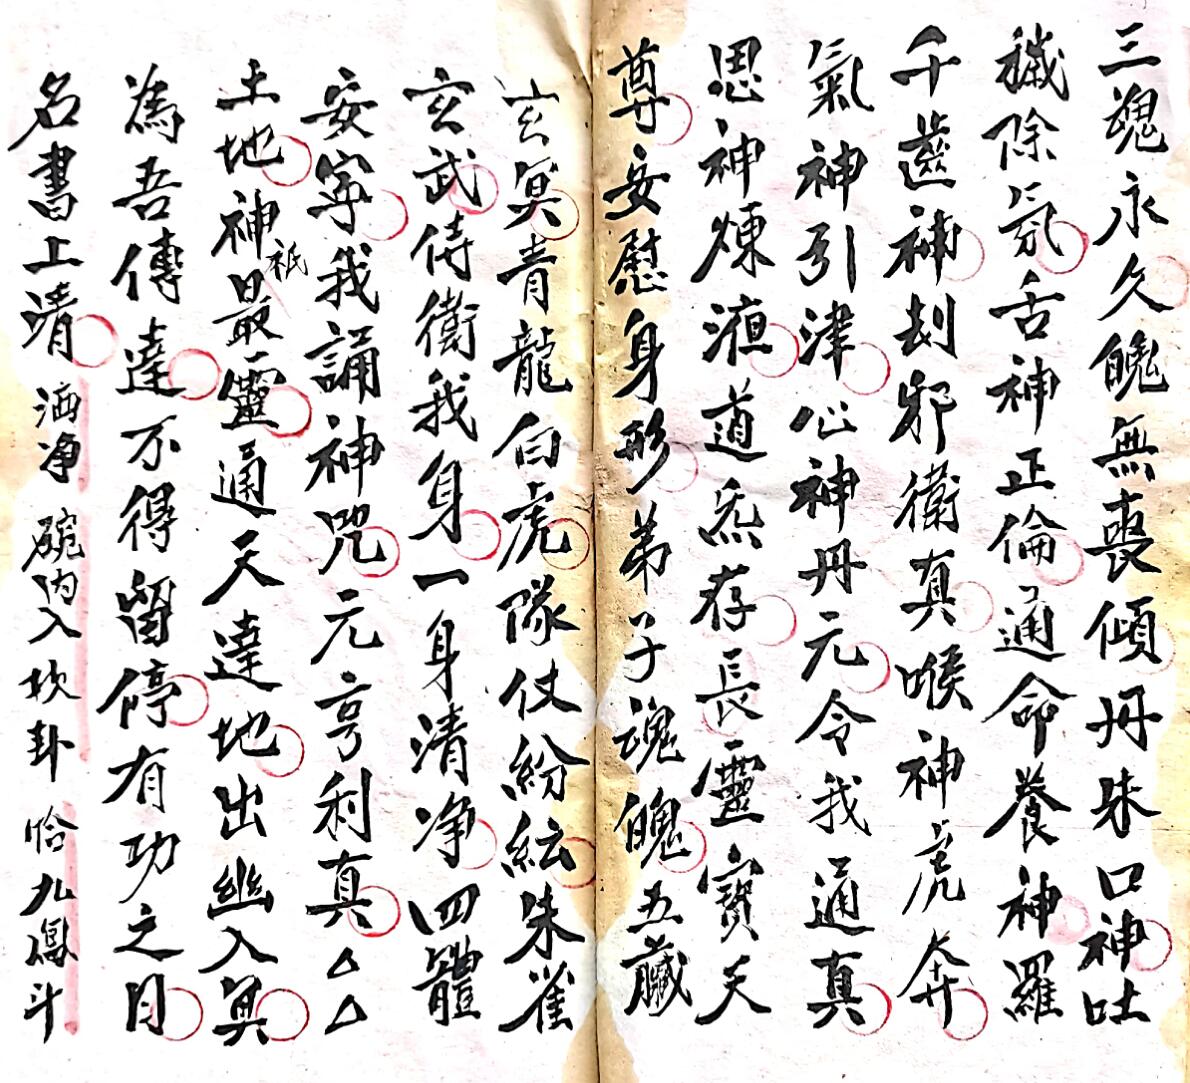 三魂永久魄無喪傾丹朱口神吐
穢除氛舌神正倫通命養神羅
千齒神刦邪衛真喉神虎奔
氣神引津心神丹元令我通真
思神煉液道炁存長靈寶天
尊安慰身形弟子魂魄五臟
玄冥青龍白虎隊仗紛紜朱雀
玄武侍衛我身一身清净四體
安寧我誦神咒元亨利真△△
土地神祇最靈通天達地出幽入冥
為吾傳達不得留停有功之日
名書上清 洒净 碗内入坎卦 恰九鳳斗